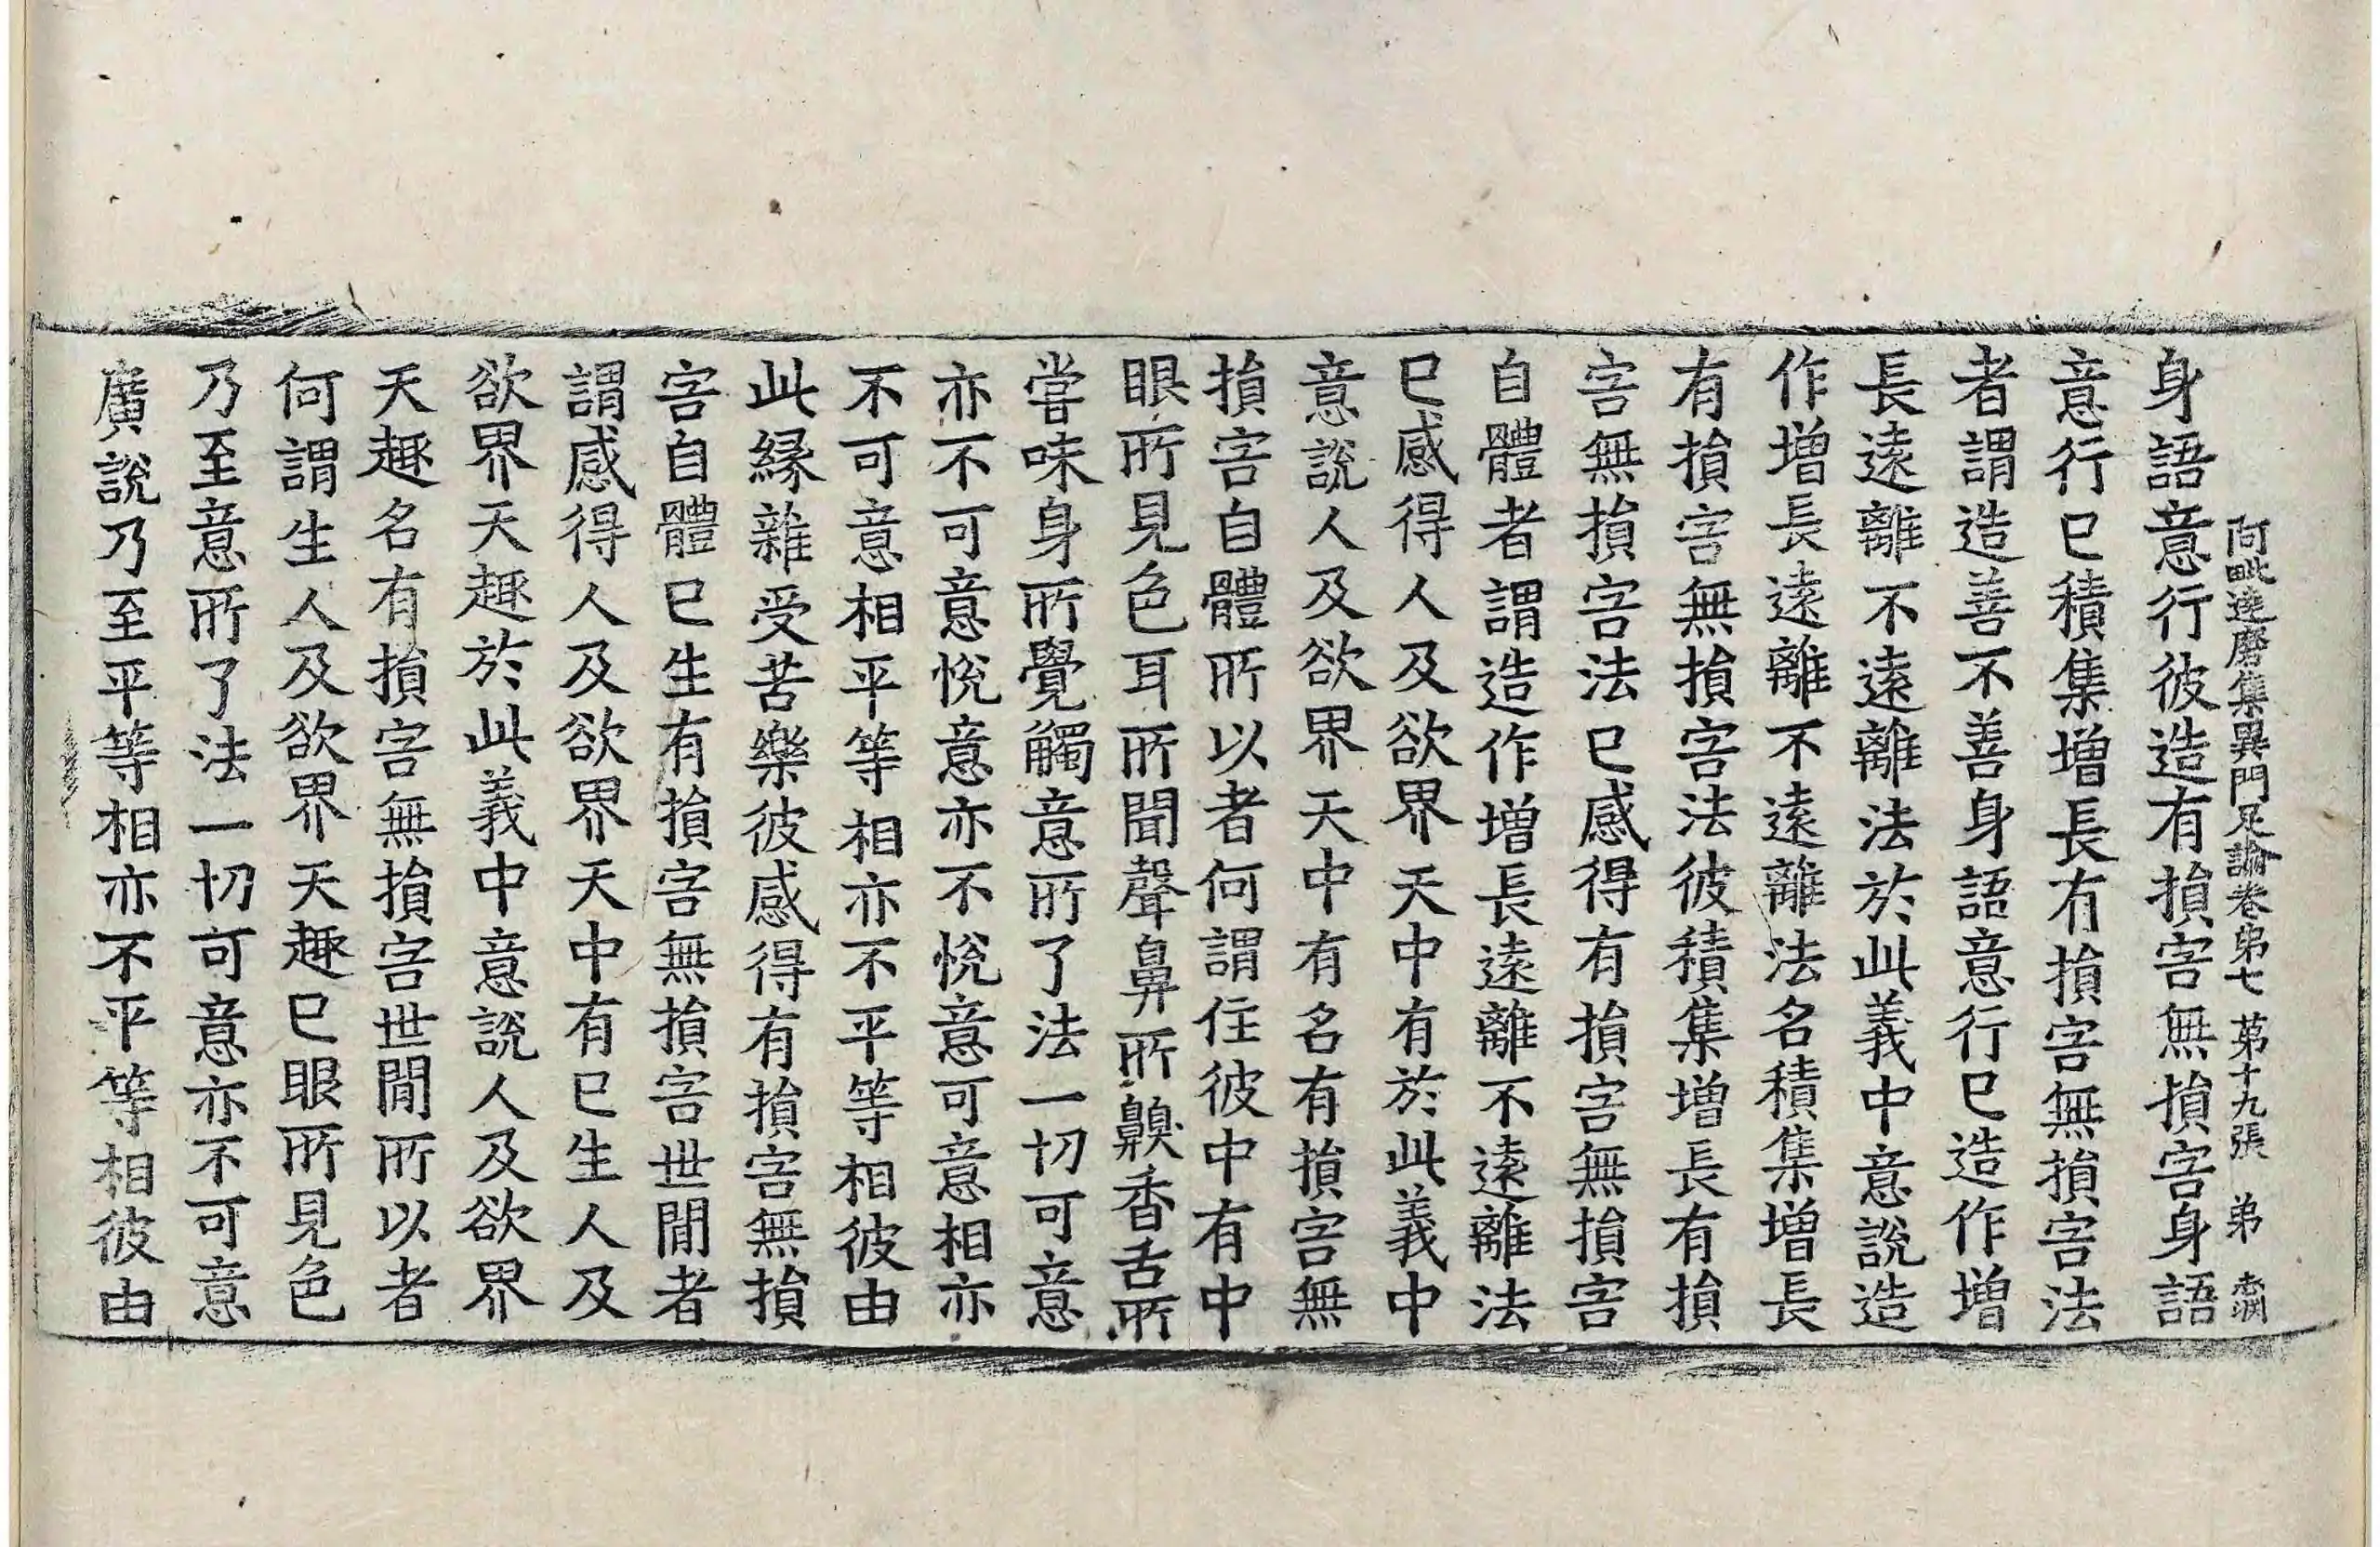 阿毗達磨集異門足論卷第七 第十九張 弟
身語意行彼造有損害無損害身語
意行已積集增長有損害無損害法
者謂造善不善身語意行已造作增
長遠離不遠離法於此義中意說造
作增長遠離不遠離法名積集增長
有損害無損害法彼積集增長有損
害無損害法已感得有損害無損害
自體者謂造作增長遠離不遠離法
已感得人及欲界天中有於此義中
意說人及欲界天中有名有損害無
損害自體所以者何謂住彼中有中
眼所見色耳所聞聲鼻所齅香舌所
嘗味身所覺觸意所了法一切可意
亦不可意悅意亦不悅意可意相亦
不可意相平等相亦不平等相彼由
此緣雜受苦樂彼感得有損害無損
害自體已生有損害無損害世間者
謂感得人及欲界天中有已生人及
欲界天趣於此義中意說人及欲界
天趣名有損害無損害世間所以者
何謂生人及欲界天趣已眼所見色
乃至意所了法一切可意亦不可意
廣說乃至平等相亦不平等相彼由